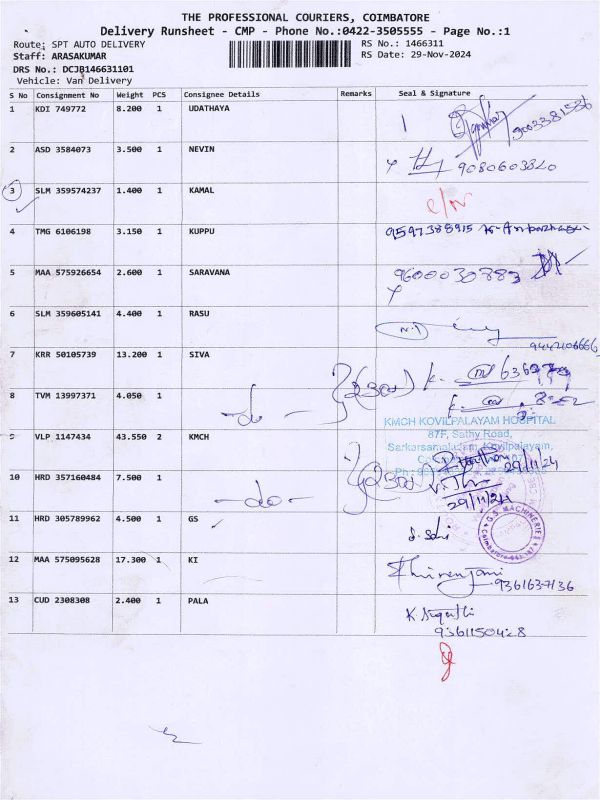 THE PROFESSIONAL COURIERS, COIMBATORE
Delivery Runsheet - CMP - Phone No.:0422-3505555 - Page No.:1
Route: SPT AUTO DELIVERY
RS No.: 1466311
Staff: ARASAKUMAR
RS Date: 29-Nov-2024
DRS No.: DCJB146631101
Vehicle: Van Delivery
S No Consignment No Weight PCS Consignee Details Remarks Seal & Signature
1 KDI 749772 8.200 1 UDATHAYA
2 ASD 3584073 3.500 1 NEVIN 9080603820
3 SLM 359574237 1.400 1 KAMAL
4 TMG 6106198 3.150 1 KUPPU 9597388915
5 MAA 575926654 2.600 1 SARAVANA 9600030883
6 SLM 359605141 4.400 1 RASU
9442106666
7 KRR 50105739 13.200 1 SIVA
8 TVM 13997371 4.050 1 -do-
KMCH KOVILPALAYAM HOSPITAL
87F, Sathy Road,
9 VLP 1147434 43.550 2 KMCH
Sarkarsamakulam, Kovilpalayam,
29/11/24
10 HRD 357160484 7.500 1 -do-
29/11/24
11 HRD 305789962 4.500 1 GS
G.S. MACHINERIES
12 MAA 575095628 17.300 1 KI
9361637136
13 CUD 2308308 2.400 1 PALA
9361150428